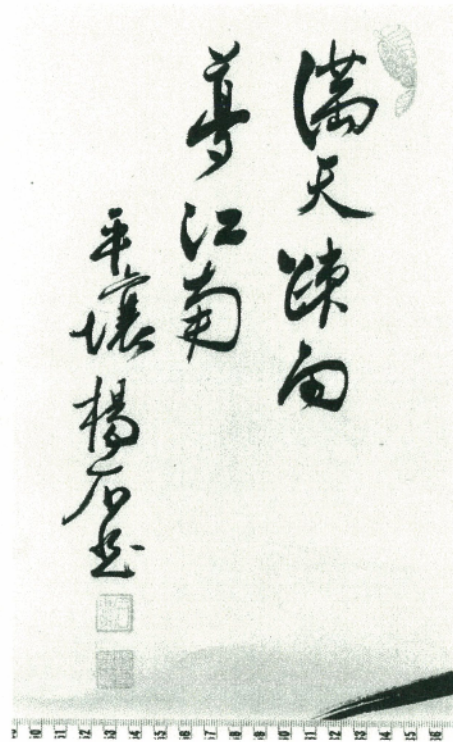 滿天疎雨
夢江南
平壤楊石然